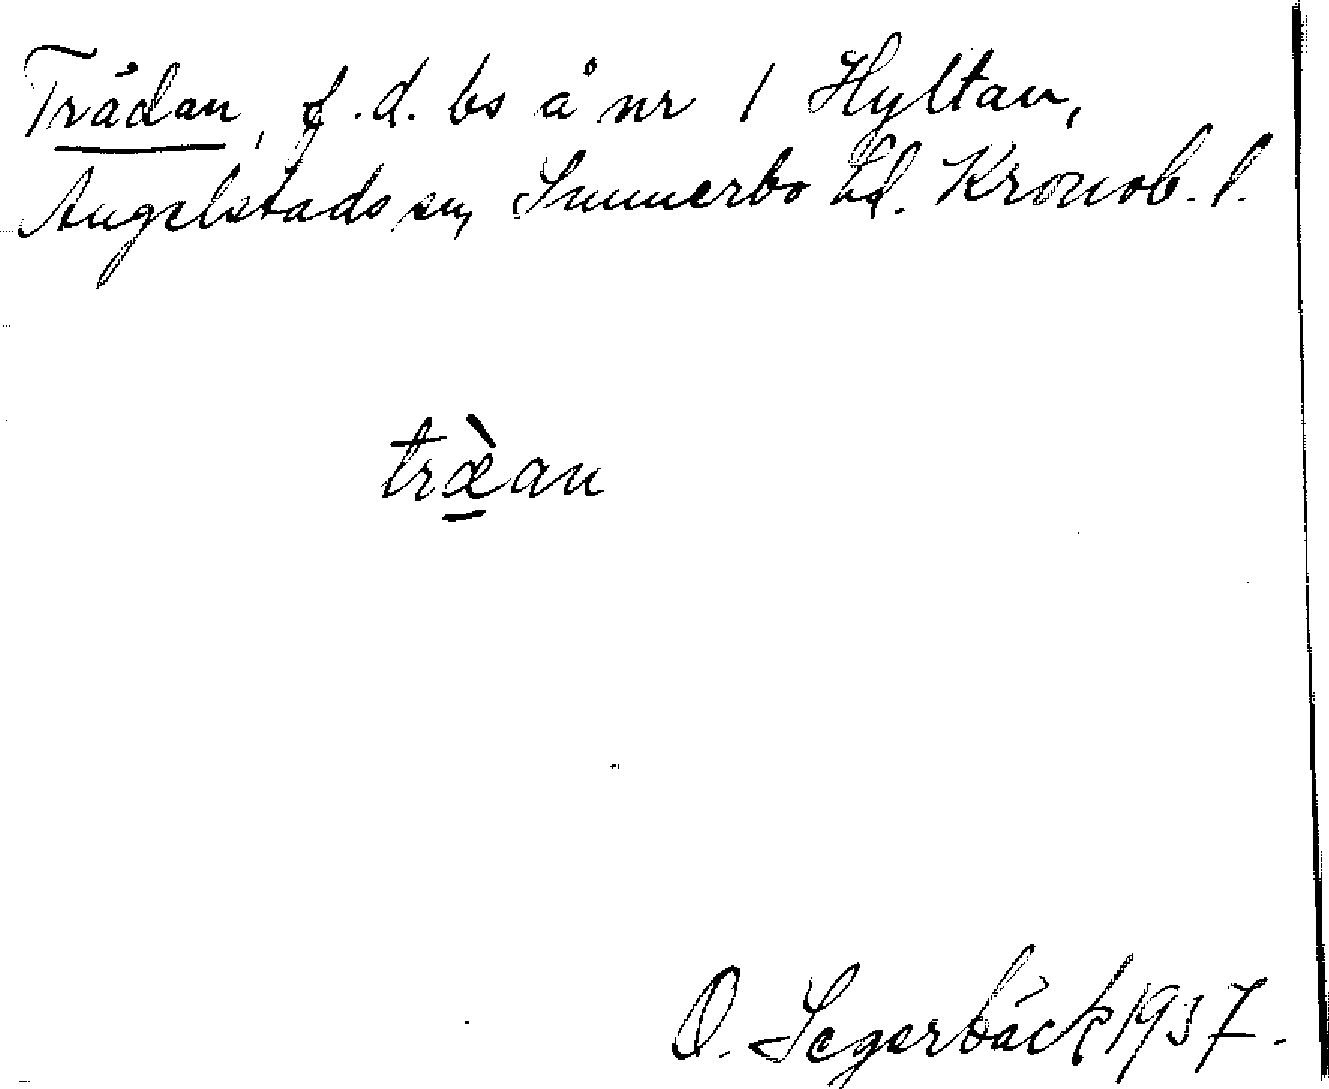 Trädan, f.d. bs å nr 1 Hyltan,
Angelstads sn, Sunnerbo hd. Kronob. l.
træ̀an
O. Segerbäck 1937.